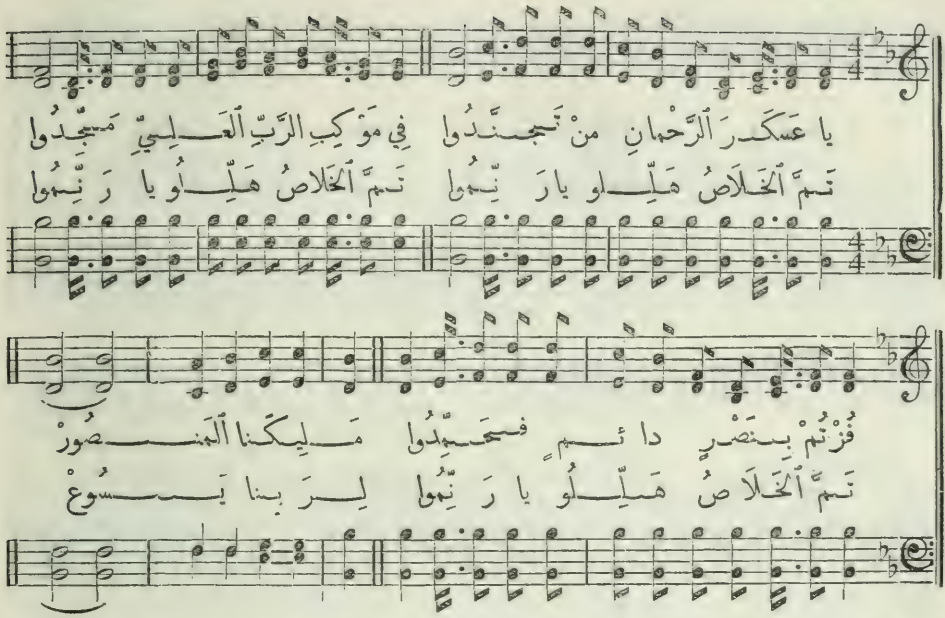 يا عَسْكَـرَ ٱلرَّحْمانِ مَنْ تَـجَـنَّـدُوا فِي مَوْكِبِ ٱلرَّبِّ ٱلْعَـلِـيِّ مَـجِّـدُوا
تَـمَّ ٱلْخَـلَاصُ هَـلِّـلُو يا رَ نِّـمُوا تَـمَّ ٱلْخَـلَاصُ هَـلِّـلُو يا رَ نِّـمُوا
فُزْتُمْ بِـنَصْرٍ دا ئـمٍ فـحَـمِّدُوا مَـلِيـكَـنا ٱلْمَنـصُورْ
تَـمَّ ٱلْخَـلَا صُ هَـلِّـلُو يا رَ نِّمُوا لِـرَ بِـنا يَـسُوعْ